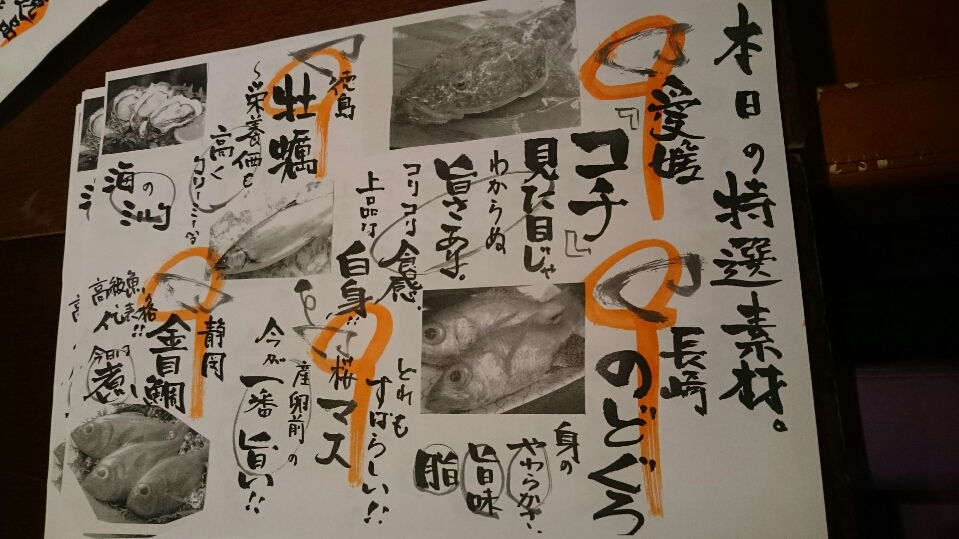 本日の特選素材。
愛媛
コチ
見た目じゃ
わからぬ
旨さあり。
コリコリ食感
上品な
白身!!
長崎
のどぐろ
身の
やわらかさ、
旨味
脂
どれも
すばらしい!!
徳島
牡蠣
〜栄養価も
高く
海の
桜マス
産卵前の
今が
一番旨い!!
静岡
金目鯛
高級魚
今日は
煮